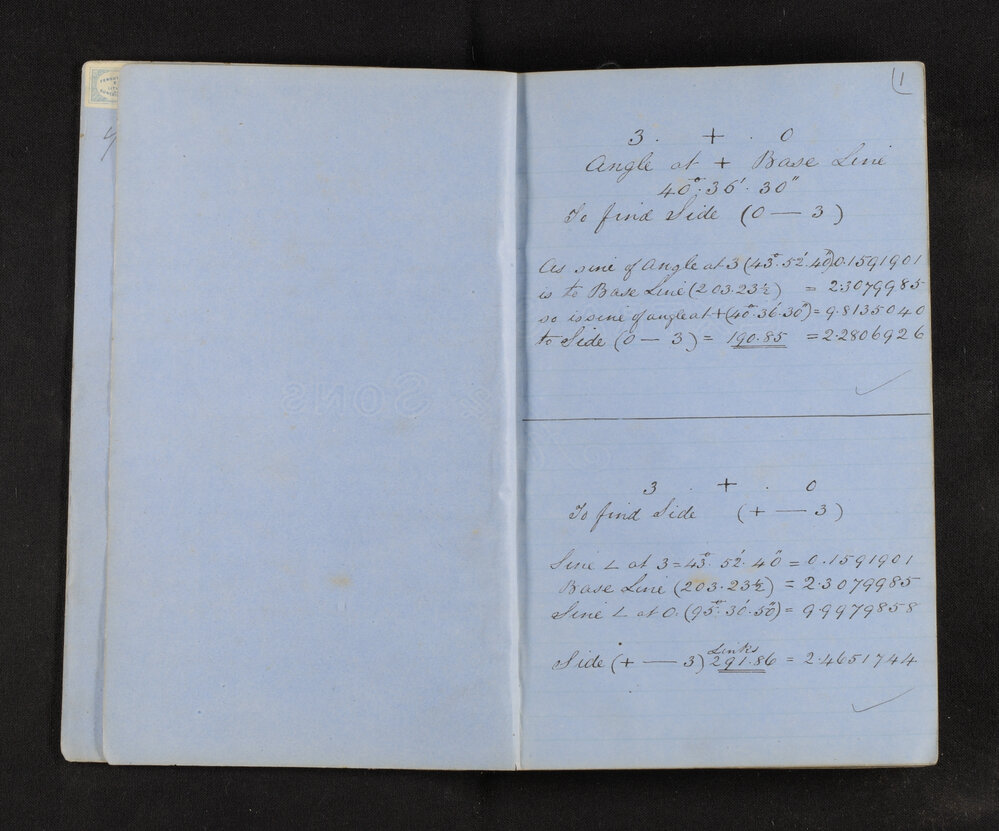 1
3 . + . 0
Angle at + Base Line
40°.36'.30"
To find Side (0 — 3)
As sine of Angle at 3 (43°.52'.40") 0.1591901
is to Base Line (203.23½) = 2.3079985
so is sine of angle at + (40°.36'.30") = 9.8135040
to Side (0 — 3) = 190.85 = 2.2806926
3 . + . 0
To find Side (+ — 3)
Sine ∠ at 3 = 43°.52'.40" = 0.1591901
Base Line (203.23½) = 2.3079985
Sine ∠ at 0. (95°.30'.50") = 9.9979858
Links
Side (+ — 3) 291.86 = 2.4651744
& SONS